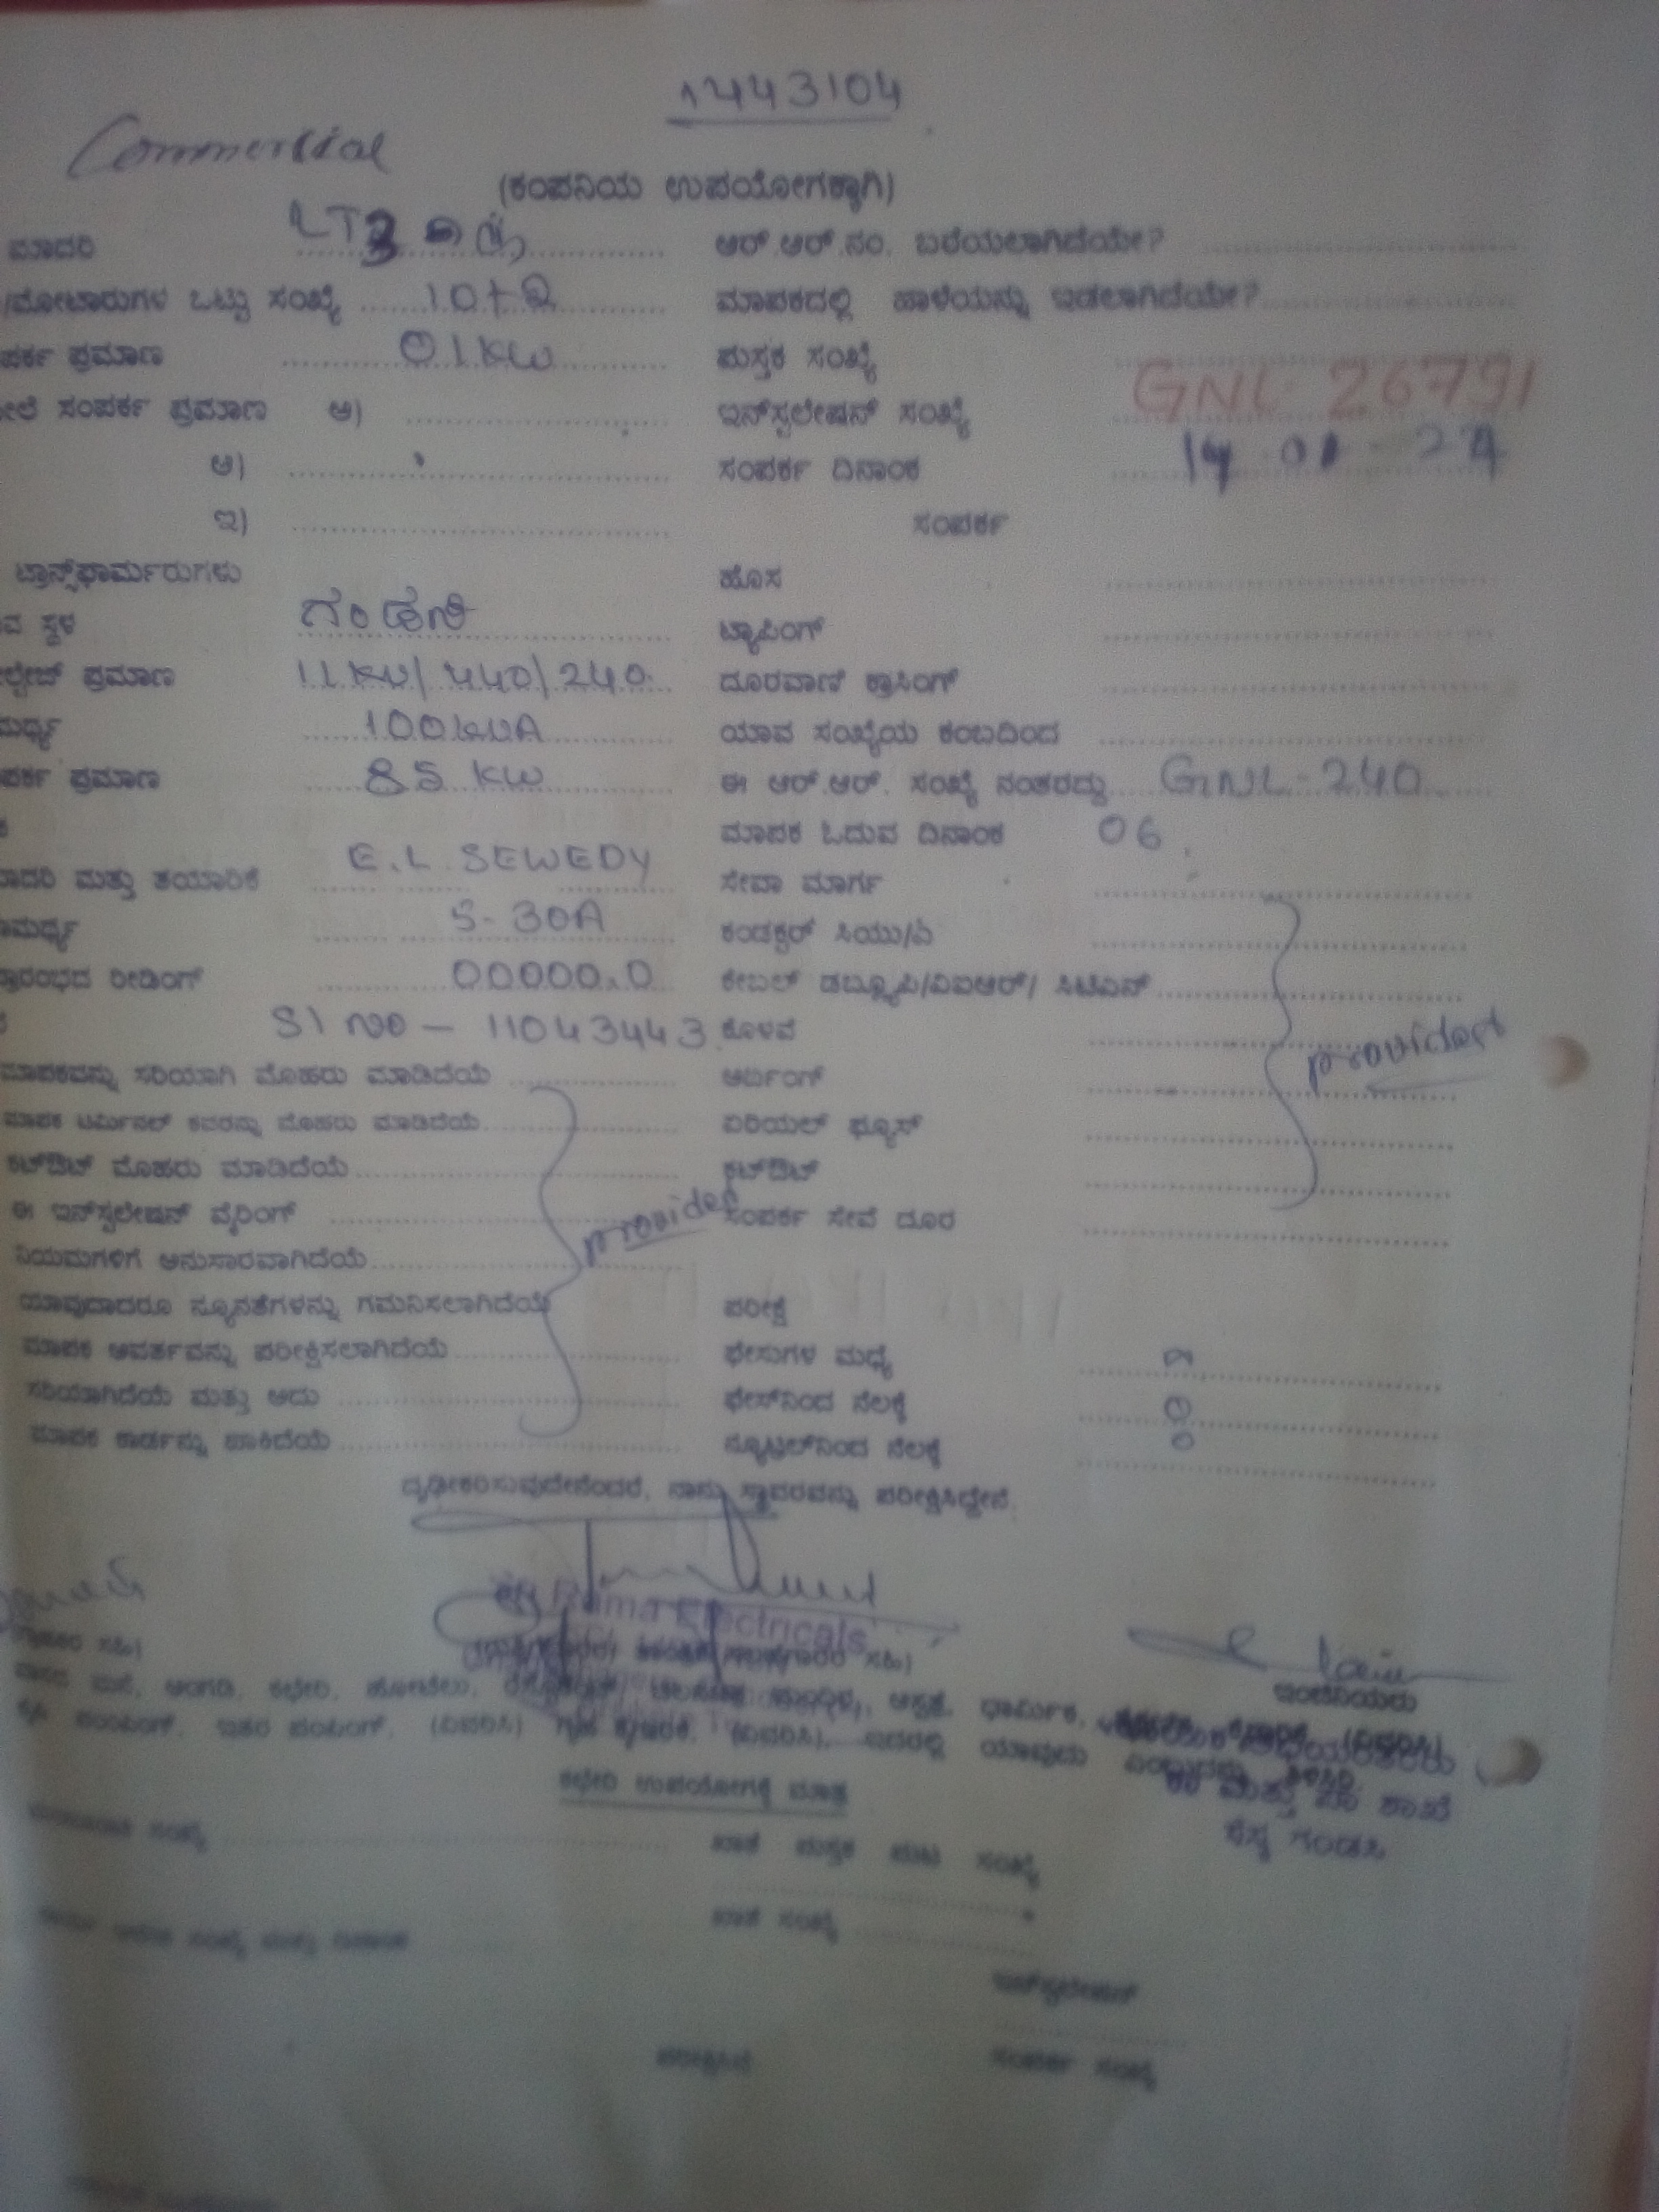 1443104
Commercial
(ಕಂಪನಿಯ ಉಪಯೋಗಕ್ಕಾಗಿ)
ಮಾದರಿ LT3 ಆರ್.ಆರ್.ನಂ. ಬರೆಯಲಾಗಿದೆಯೇ?
/ಮೋಟಾರುಗಳ ಒಟ್ಟು ಸಂಖ್ಯೆ 10+2 ಮಾಪಕದಲ್ಲಿ ಹಾಳೆಯನ್ನು ಇಡಲಾಗಿದೆಯೇ?
ಪರ್ಕ ಪ್ರಮಾಣ 01KW ಪುಸ್ತಕ ಸಂಖ್ಯೆ
ಸಂಪರ್ಕ ಪ್ರಮಾಣ ಅ) ಇನ್‌ಸ್ಟಲೇಷನ್ ಸಂಖ್ಯೆ GNL 26791
ಆ) ಸಂಪರ್ಕ ದಿನಾಂಕ 14-01-24
ಇ) ಸಂಪರ್ಕ
ಟ್ರಾನ್ಸ್‌ಫಾರ್ಮರುಗಳು ಹೊಸ
ವ ಸ್ಥಳ ಗಂಡಸಿ ಟ್ಯಾಪಿಂಗ್
ಲ್ಟೇಜ್ ಪ್ರಮಾಣ 11KV/440/240 ದೂರವಾಣಿ ಕ್ರಾಸಿಂಗ್
ಮರ್ಥ್ಯ 100KVA ಯಾವ ಸಂಖ್ಯೆಯ ಕಂಬದಿಂದ
ಪರ್ಕ ಪ್ರಮಾಣ 85 KW ಈ ಆರ್.ಆರ್. ಸಂಖ್ಯೆ ನಂತರದ್ದು GNL-240
ಮಾಪಕ ಓದುವ ದಿನಾಂಕ 06
ಾದರಿ ಮತ್ತು ತಯಾರಿಕೆ E.L SEWEDY ಸೇವಾ ಮಾರ್ಗ
ಾಮರ್ಥ್ಯ 5-30A ಕಂಡಕ್ಟರ್ ಸಿಯು/ಎ
ಪ್ರಾರಂಭದ ರೀಡಿಂಗ್ 00000.0 ಕೇಬಲ್ ಡಬ್ಲ್ಯೂಪಿ/ವಿಐಆರ್/ ಸಿಟಿಎಸ್
Sl no - 11043443 ಕೊಳವೆ provided
ಮಾಪಕವನ್ನು ಸರಿಯಾಗಿ ಮೊಹರು ಮಾಡಿದೆಯೆ ಅರ್ಥಿಂಗ್
ಮಾಪಕ ಟರ್ಮಿನಲ್ ಕವರನ್ನು ಮೊಹರು ಮಾಡಿದೆಯೆ ಏರಿಯಲ್ ಫ್ಯೂಸ್
ಕಟ್‌ಔಟ್ ಮೊಹರು ಮಾಡಿದೆಯೆ ಕಟ್‌ಔಟ್
ಈ ಇನ್‌ಸ್ಟಲೇಷನ್ ವೈರಿಂಗ್ provided ಸಂಪರ್ಕ ಸೇವೆ ದೂರ
ನಿಯಮಗಳಿಗೆ ಅನುಸಾರವಾಗಿದೆಯೆ
ಯಾವುದಾದರೂ ನ್ಯೂನತೆಗಳನ್ನು ಗಮನಿಸಲಾಗಿದೆಯೆ ಪರೀಕ್ಷೆ
ಮಾಪಕ ಆವರ್ತವನ್ನು ಪರೀಕ್ಷಿಸಲಾಗಿದೆಯೆ ಫೇಸುಗಳ ಮಧ್ಯೆ
ಸರಿಯಾಗಿದೆಯೆ ಮತ್ತು ಅದು ಫೇಸ್‌ನಿಂದ ನೆಲಕ್ಕೆ
ಮಾಪಕ ಕಾರ್ಡನ್ನು ಹಾಕಿದೆಯೆ ನ್ಯೂಟ್ರಲ್‌ನಿಂದ ನೆಲಕ್ಕೆ
ದೃಢೀಕರಿಸುವುದೇನೆಂದರೆ, ನಾನು ಸ್ಥಾವರವನ್ನು ಪರೀಕ್ಷಿಸಿದ್ದೇನೆ.
Rama Electricals
ಸಹಿ)
ಇಂಜಿನಿಯರು
ಮನೆ, ಅಂಗಡಿ, ಕಛೇರಿ, ಹೋಟೆಲು, ಆಸ್ಪತ್ರೆ, ಧಾರ್ಮಿಕ,
ಪಂಪಿಂಗ್, ಇತರ ಪಂಪಿಂಗ್, (ವಿವರಿಸಿ) ಗೃಹ ಕೈಗಾರಿಕೆ, (ವಿವರಿಸಿ), ಇದರಲ್ಲಿ ಯಾವುದು ಎಂಬುದನ್ನು ತಿಳಿಸಿ.
ಕಛೇರಿ ಉಪಯೋಗಕ್ಕೆ ಮಾತ್ರ
ಕಾ ಮತ್ತು ಪಾ ಶಾಖೆ
ಗಂಡಸಿ
ಸಂಖ್ಯೆ ಖಾತೆ ಪುಸ್ತಕ ಪುಟ ಸಂಖ್ಯೆ
ಖಾತೆ ಸಂಖ್ಯೆ
ಇನ್‌ಸ್ಟಲೇಷನ್
ಸಂಪರ್ಕ ಸಂಖ್ಯೆ